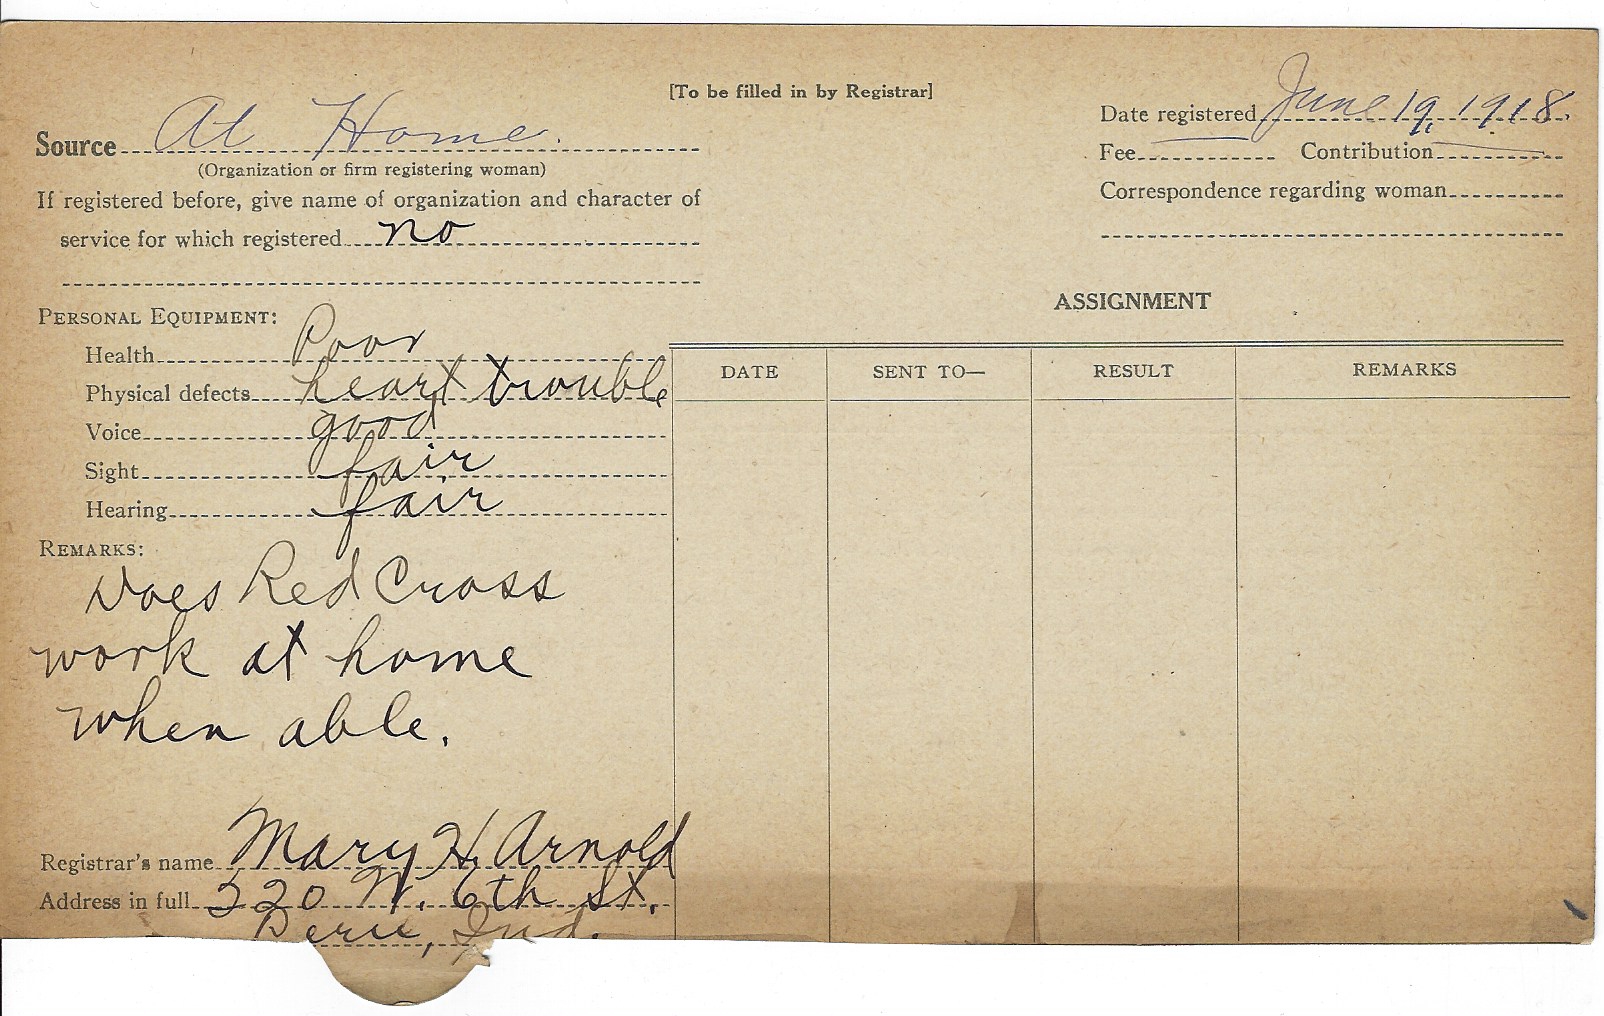 [To be filled in by Registrar]
Source At Home.
(Organization or firm registering woman)
If registered before, give name of organization and character of
service for which registered no
Date registered June 19, 1918.
Fee Contribution
Correspondence regarding woman
PERSONAL EQUIPMENT:
Health Poor
Physical defects heart trouble
Voice good
Sight fair
Hearing fair
REMARKS:
Does Red Cross
work at home
when able.
Registrar's name Mary H. Arnold
Address in full 320 W. 6th St.
Peru, Ind.
ASSIGNMENT
DATE SENT TO— RESULT REMARKS